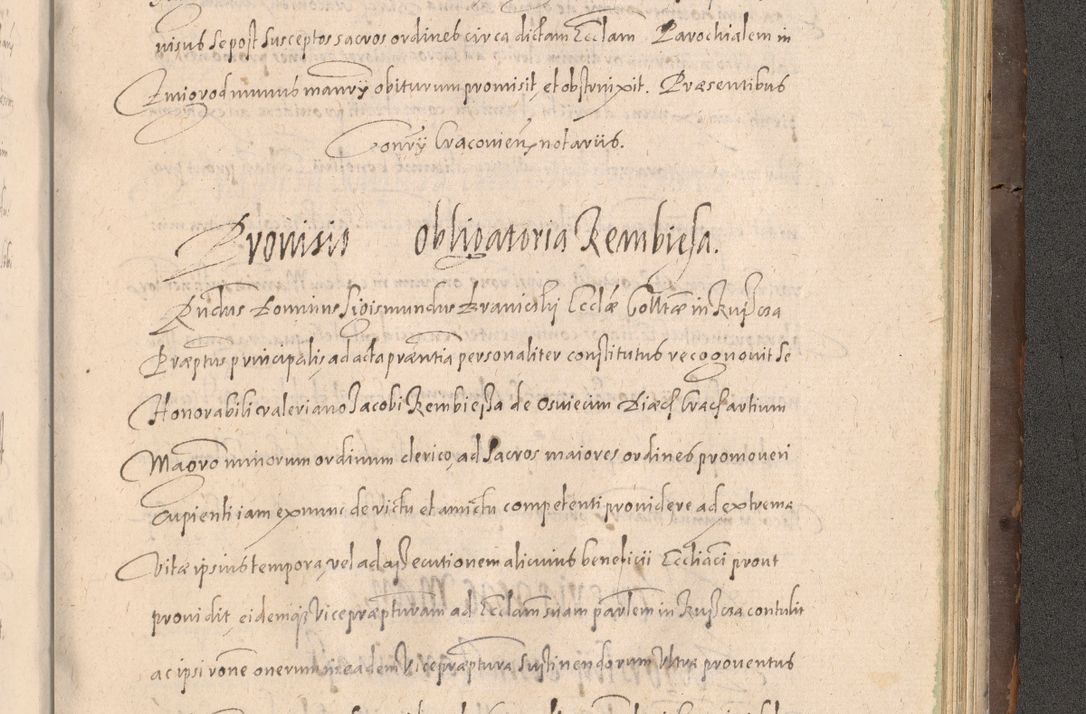 nisus se post susceptos sacros ordines circa dictam Ecclam Parochialem in
Amiorod munus manry obiturum promisit, et obstrinxit. Præsentibus
Cracovien notariis.
Provisio obligatoria Rembiesa.
Rndus Dominus Sigismundus Ecclæ Colltæ in
Præptus principalis ad acta præntia personaliter constitutus recognovit se
Honorabili Valeriano Jacobi Rembiessa de Osviecim Diæc Crac artium
Magro minorum ordinum clerico, ad Sacros maiores ordines promoveri
Cupienti iam ex nunc de victu et amictu competenti providere ad extrema
Vitæ ipsius tempora, vel ad assecutionem alicuius beneficii Eccliaci prout
providit, eidemq Vicepræpturam ad Ecclam suam parlem in contulit
ac ipsi rone onerum in eadem Vicepræptura sustinendorum Ultra proventus